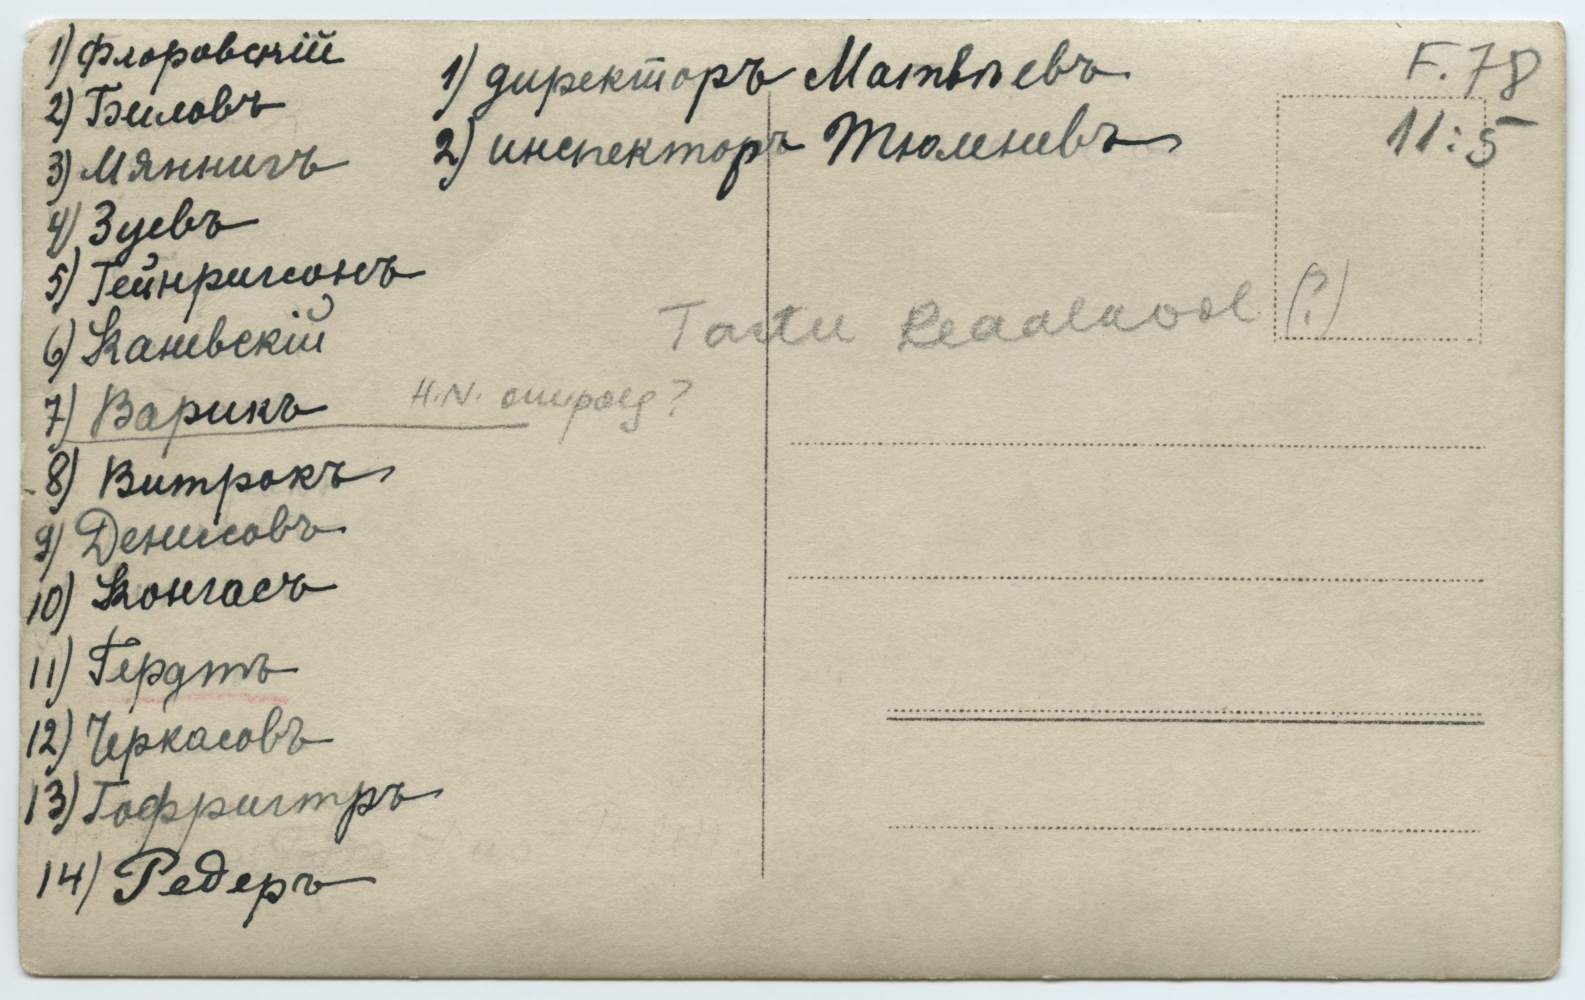 1) Флоровскій
2) Биловъ
3) Мяннигъ
4) Зуевъ
5) Гейнрихсонъ
6) Каневскій
7) Варикъ
8) Витрокъ
9) Денисовъ
10) Конгасъ
11) Гердтъ
12) Черкасовъ
13) Гофрихтръ
14) Редеръ
1) директоръ Матвѣевъ
2) инспекторъ Тюленевъ
F. 78
11:5
Tartu Reaalkool (?)
H.N. õllipoeg?